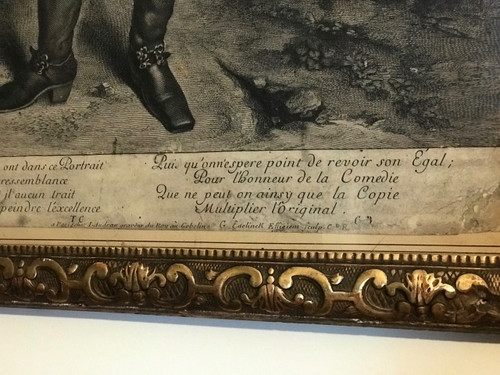 ont dans ce Portrait
ressemblance
il'aucun trait
peindre l'excellence
Puis qu'on n'espere point de revoir son Egal;
Pour l'honneur de la Comedie
Que ne peut on ainsy que la Copie
Multiplier l'Original.
G. Edelinck Effigiem Sculp. C.P.R.